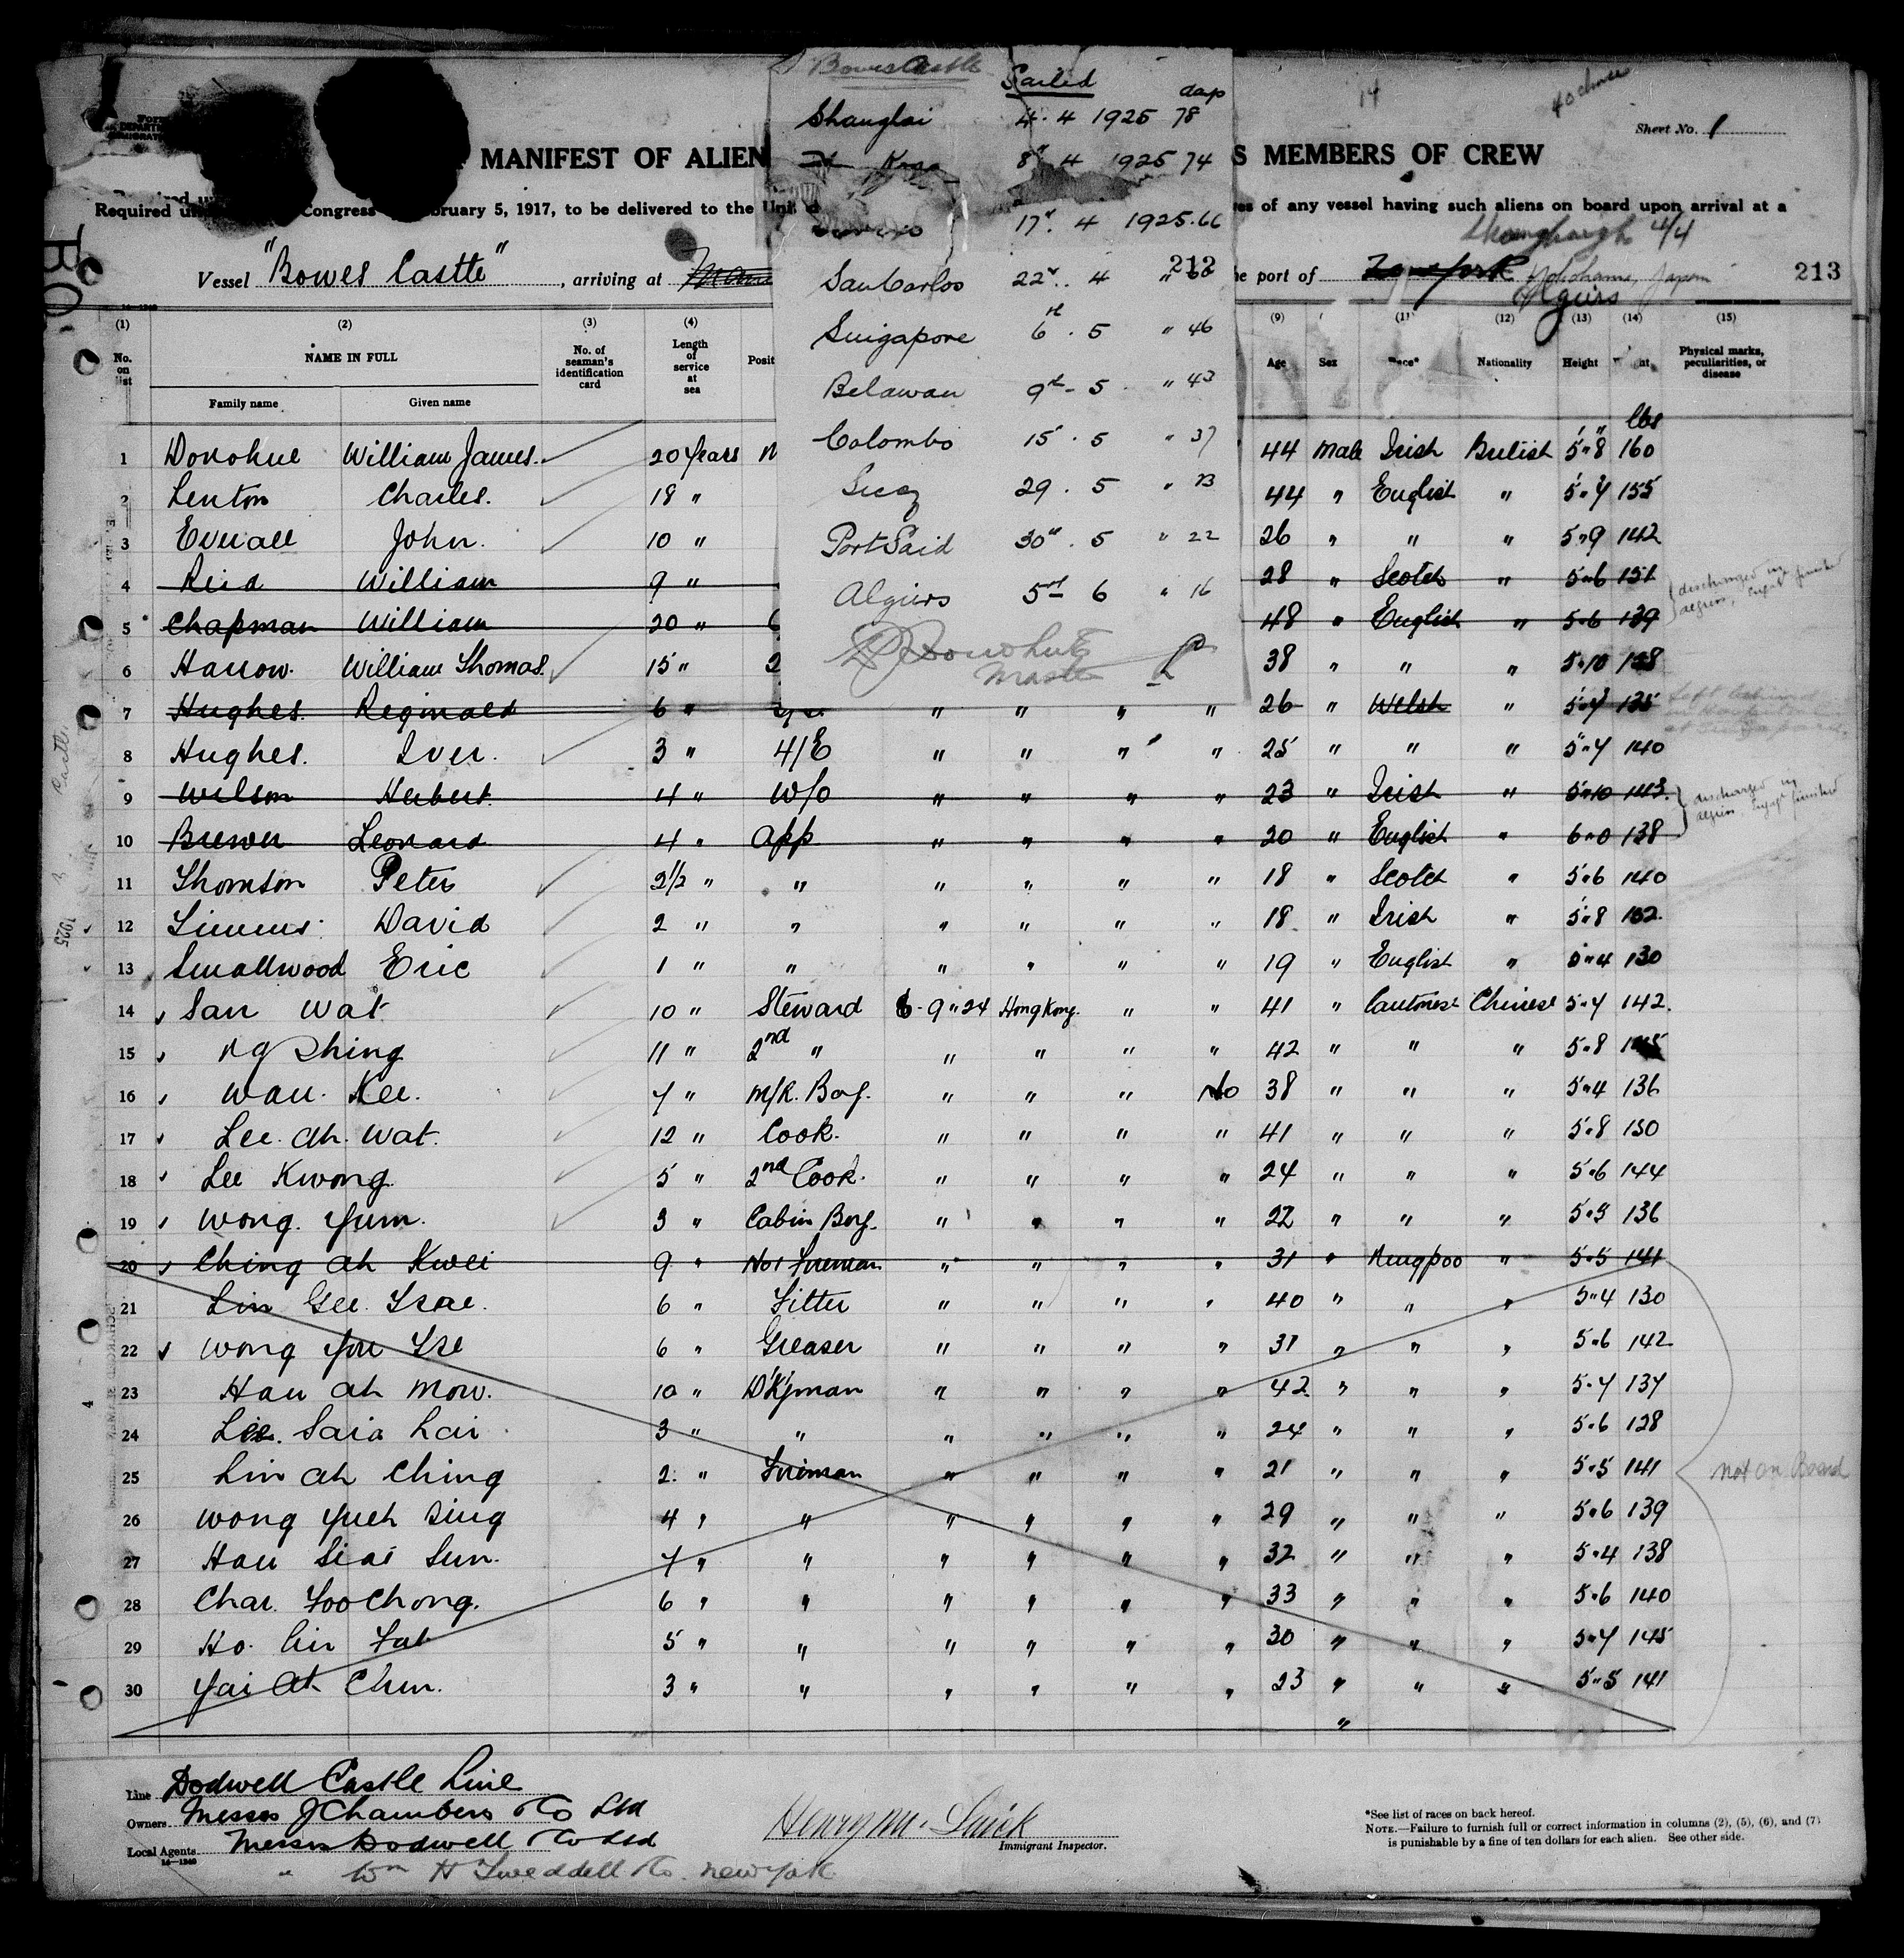 Bowes Castle Sailed
days
Shanghai 4 . 4 1925 78
8th 4 1925 74
17th . 4 1925 . 66
San Carlos 22nd . 4 "
Singapore 6th . 5 " 46
Belawan 9th - 5 - " 43
Colombo 15 . 5 " 37
Suez 29 . 5 " 23
Port Said 30th . 5 " 22
Algiers 5th 6 " 16
Donohue
Master
14
Sheet No. 1
MANIFEST OF ALIEN S MEMBERS OF CREW
Required Congress bruary 5, 1917, to be delivered to the of any vessel having such aliens on board upon arrival at a
4/4
Vessel "Bowes Castle", arriving at the port of Yokohama, Japan 213
Algiers
213
(1) (2) (3) (4) (9) (11) (12) (13) (14) (15)
No. on list NAME IN FULL No. of seaman's identification card Length of service at sea Posit Age Sex Race* Nationality Height Physical marks, peculiarities, or disease
Family name Given name
lbs
1 Donohue William James. 20 Years 44 Male Irish British 5"8 160
2 Lenton Charles. 18 " 44 " English " 5"7 155
3 Everall John. 10 " 26 " " " 5"9 142
4 Reid William 9 " 28 " Scotch " 5"6 151
discharged in Algiers,
5 Chapman William 20 " 48 " English " 5"6 139
6 Harrow. William Thomas. 15 " 2 38 " " " 5"10 158
7 Hughes. Reginald 6 " " " " " 26 " Welsh " 5"7 135
8 Hughes. Iver. 3 " 4/E " " " " 25 " " " 5"7 140
9 Wilson Herbert. 4 " W/O " " " " 23 " Irish " 5"10 143.
discharged in Algiers,
10 Brewer Leonard 4 " App " " " " 20 " English " 6"0 138
11 Thomson Peter 2½ " " " " " " 18 " Scotch " 5"6 140
12 Simms David 2 " " " " " " 18 " Irish " 5"8 132.
13 Smallwood Eric 1 " " " " " " 19 " English " 5"4 130
14 San Wat 10 " Steward 6-9"24 Hong Kong. " " 41 " Cantonese Chinese 5"7 142.
15 Ng Shing 11 " 2nd " " " " " 42 " " " 5"8
16 Wau. Kee. 7 " M/R. Boy. " " " No 38 " " " 5"4 136
17 Lee Ah Wat. 12 " Cook. " " " " 41 " " " 5"8 150
18 Lee Kwong 5 " 2nd Cook. " " " " 24 " " " 5"6 144
19 Wong. Yum. 3 " Cabin Boy. " " " " 22 " " " 5"5 136
20 Ching Ah Kwei 9 " No 1 Fireman " " " " 31 " Ningpoo " 5"5 141
21 Lin Gee Tsae. 6 " Fitter " " " " 40 " " " 5"4 130
22 Wong You Tse 6 " Greaser " " " " 31 " " " 5"6 142
23 Hau Ah Mow. 10 " D'K'yman " " " " 42 " " " 5"7 137
24 Lee. Saia Lai 3 " " " " " " 24 " " " 5"6 128
25 Lin Ah Ching 2. " Fireman " " " " 21 " " " 5"5 141
not on Board
26 Wong Yueh Sing 4 " " " " " " 29 " " " 5"6 139
27 Hau Siai Sun. 7 " " " " " " 32 " " " 5"4 138
28 Char. Foo Chong. 6 " " " " " " 33 " " " 5"6 140
29 Ho. Cin Fat 5 " " " " " " 30 " " " 5"7 145
30 Yai Ah Chun. 3 " " " " " " 23 " " " 5"5 141
"
Line Dodwell Castle Line
Owners Messrs J Chambers & Co Ltd
Local Agents Messrs Dodwell & Co Ltd
" Wm H Tweddell & Co. New York
Immigrant Inspector.
*See list of races on back hereof.
NOTE.—Failure to furnish full or correct information in columns (2), (5), (6), and (7)
is punishable by a fine of ten dollars for each alien. See other side.